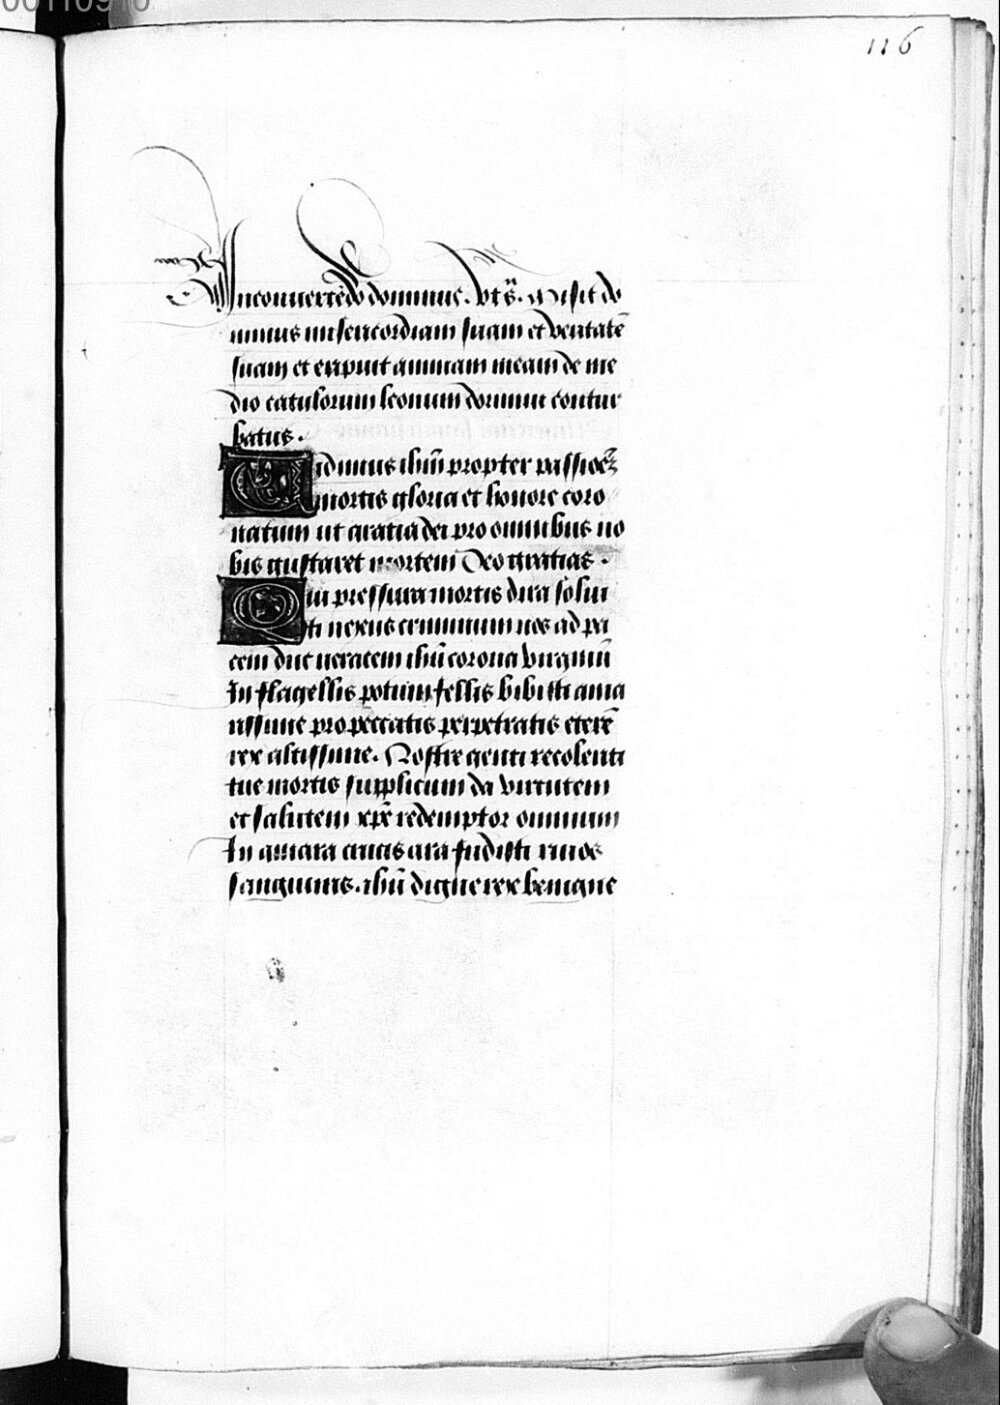 116
In convertẽdo dominus. Ats̃. Misit do
minus misericordiam suam et veritatẽ
suam et eripuit animam meam de me
dio catulorum leonum dormivi contur
batus.
Vidimus ihũ propter passioẽz
mortis gloria et honore coro
natum ut gratia dei pro omnibus no
bis gustaret mortem Deo gratias.
Qui pressura mortis dira solui
sti nexus criminum nos ad pa
cem duc veracem ihũ corona virginũ
In flagellis potum fellis bibisti ama
rissime pro peccatis perpetratis eterẽ
rex altissime. Nostre genti recolenti
tue mortis supplicium da virtutem
et salutem xp̃e redemptor omnium
In amara crucis ara fudisti rivos
sanguinis. ihũ digne rex benigne